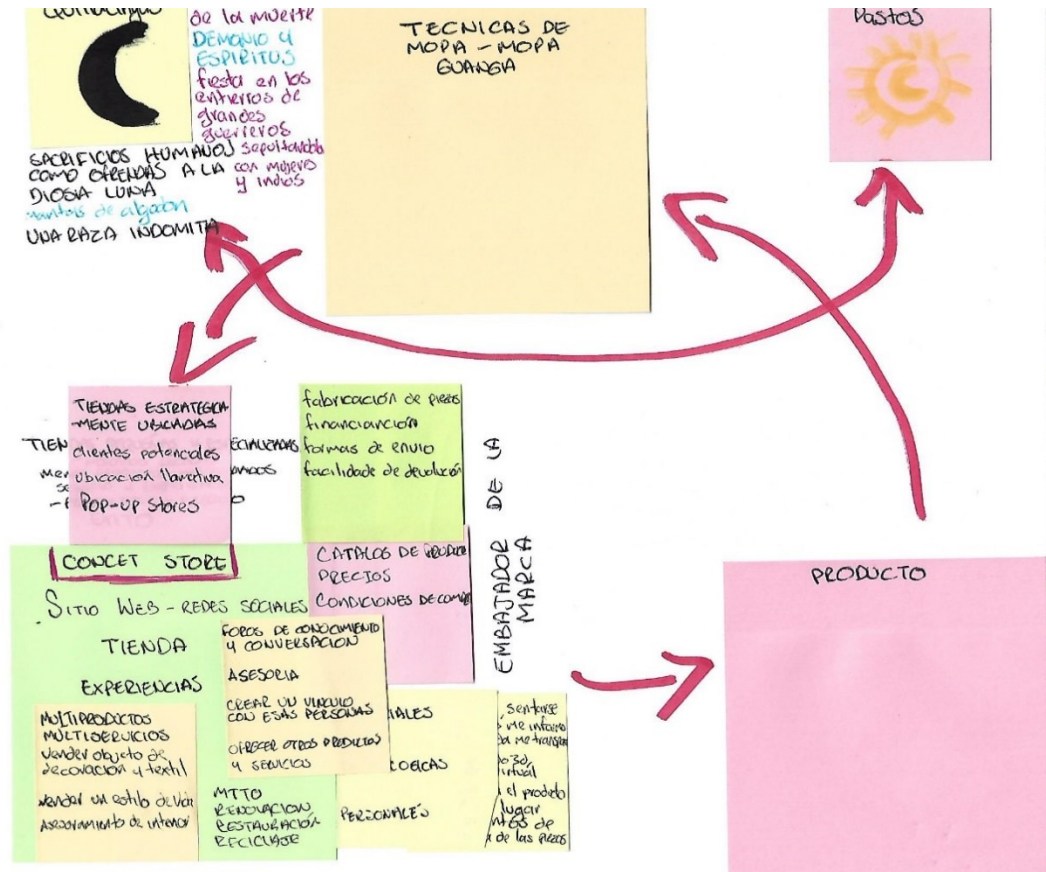 de la muerte
DEMONIO Y
ESPIRITUS
fiesta en los
entierros de
grandes
guerreros
sepultandolo
con mujeres
y indios
SACRIFICIOS HUMANOS
COMO OFRENDAS A LA
DIOSA LUNA
mantas de algodon
UNA RAZA INDOMITA
TECNICAS DE
MOPA - MOPA
GUANGA
Pastos
TIENDAS ESTRATEGICA
-MENTE UBICADAS
clientes potenciales
ubicacion llamativa
POP-UP Stores
TIEN
fabricación de piezas
financianción
formas de envio
facilidade de devolución
EMBAJADOR DE LA
MARCA
CONCET STORE
SITIO WEB - REDES SOCIALES
TIENDA
EXPERIENCIAS
CATALOS DE PRODUC
PRECIOS
CONDICIONES DE COMP
FOROS DE CONOCIMIENTO
Y CONVERSACION
ASESORIA
CREAR UN VINCULO
CON ESAS PERSONAS
OFRECER OTROS PRODUCTOS
Y SERVICIOS
MULTIPRODUCTOS
MULTISERVICIOS
vender objeto de
decoracion y textil
vender un estilo de vida
Asesoramiento de interior
MTTO
RENOVACION
RESTAURACIÓN
RECICLAJE
IALES
LOGICAS
PERSONALES
sentarse
me informo
me transpor
3d,
irtual
el producto
lugar
ntos de
de las piezas
PRODUCTO